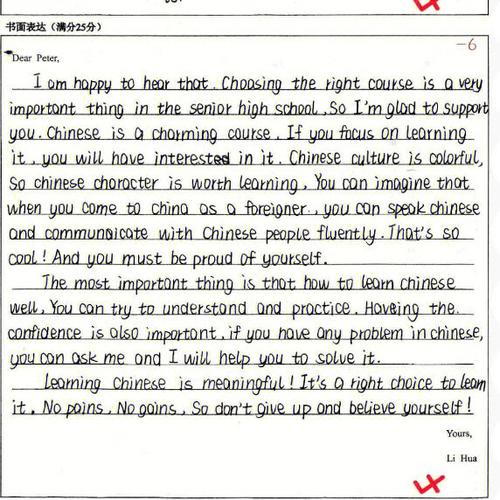 书面表达（满分25分）
-6
Dear Peter,
I am happy to hear that. Choosing the right course is a very
important thing in the senior high school, So I'm glad to support
you. Chinese is a charming course. If you focus on learning
it, you will have interested in it. Chinese culture is colorful,
So chinese character is worth learning. You can imagine that
when you come to china as a foreigner, you can speak chinese
and communicate with Chinese people fluently. That's so
cool! And you must be proud of yourself.
The most important thing is that how to learn chinese
well, You can try to understand and practice. Having the
confidence is also important, if you have any problem in chinese,
you can ask me and I will help you to solve it.
Learning Chinese is meaningful! It's a right choice to learn
it. No pains, No gains, So don't give up and believe yourself!
Yours,
Li Hua